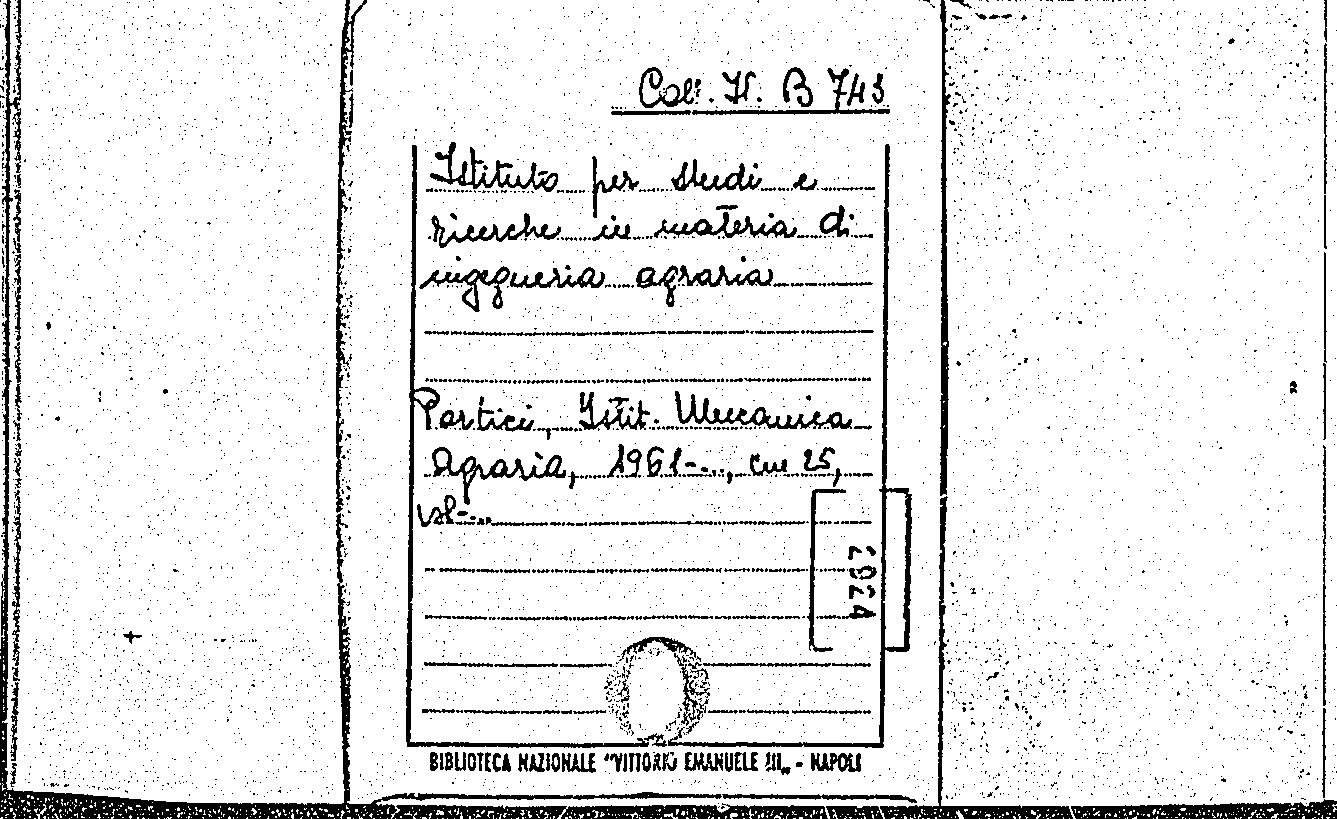 Coll. It. B 743
Istituto per studi e
ricerche in materia di
ingegneria agraria
Portici, Istit. Meccanica
Agraria, 1961-..., cm 25,
vl-...
2024
BIBLIOTECA NAZIONALE "VITTORIO EMANUELE III„ - NAPOLI